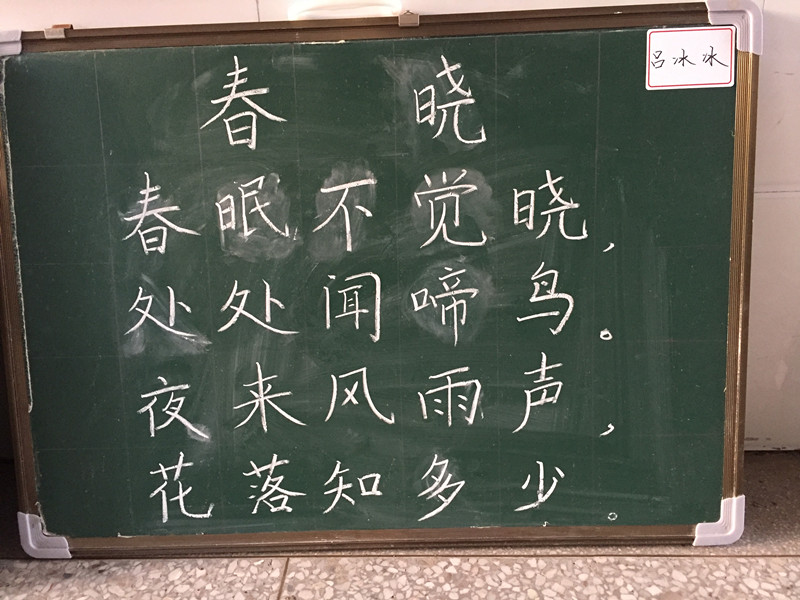 吕冰冰
春晓
春眠不觉晓，
处处闻啼鸟。
夜来风雨声，
花落知多少。